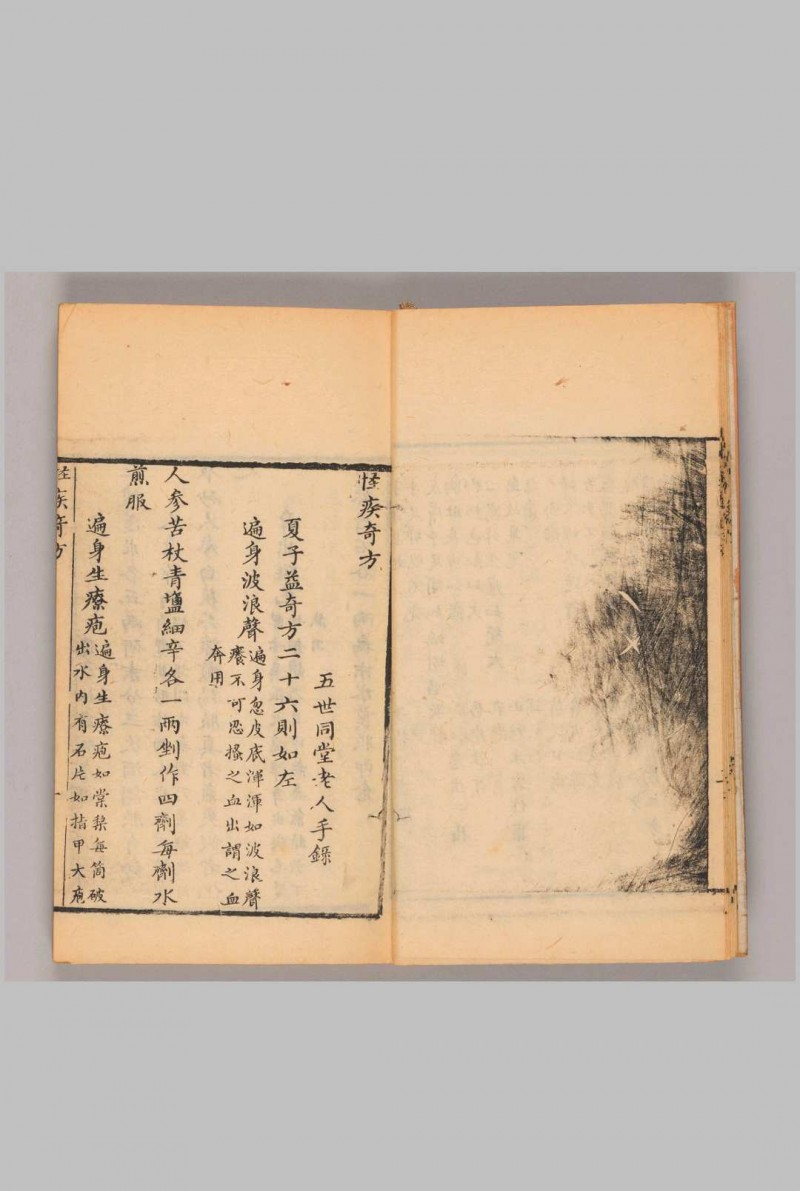 怪疾奇方
五世同堂老人手錄
夏子益奇方二十六則如左
遍身波浪聲遍身忽皮底渾渾如波浪聲
癢不可忍搔之血出謂之血
奔用
人參苦杖青塩細辛各一兩剉作四劑每劑水
煎服
遍身生療疱遍身生療疱如棠梨每箇破
出水內有石片如指甲大疱
怪疾奇方